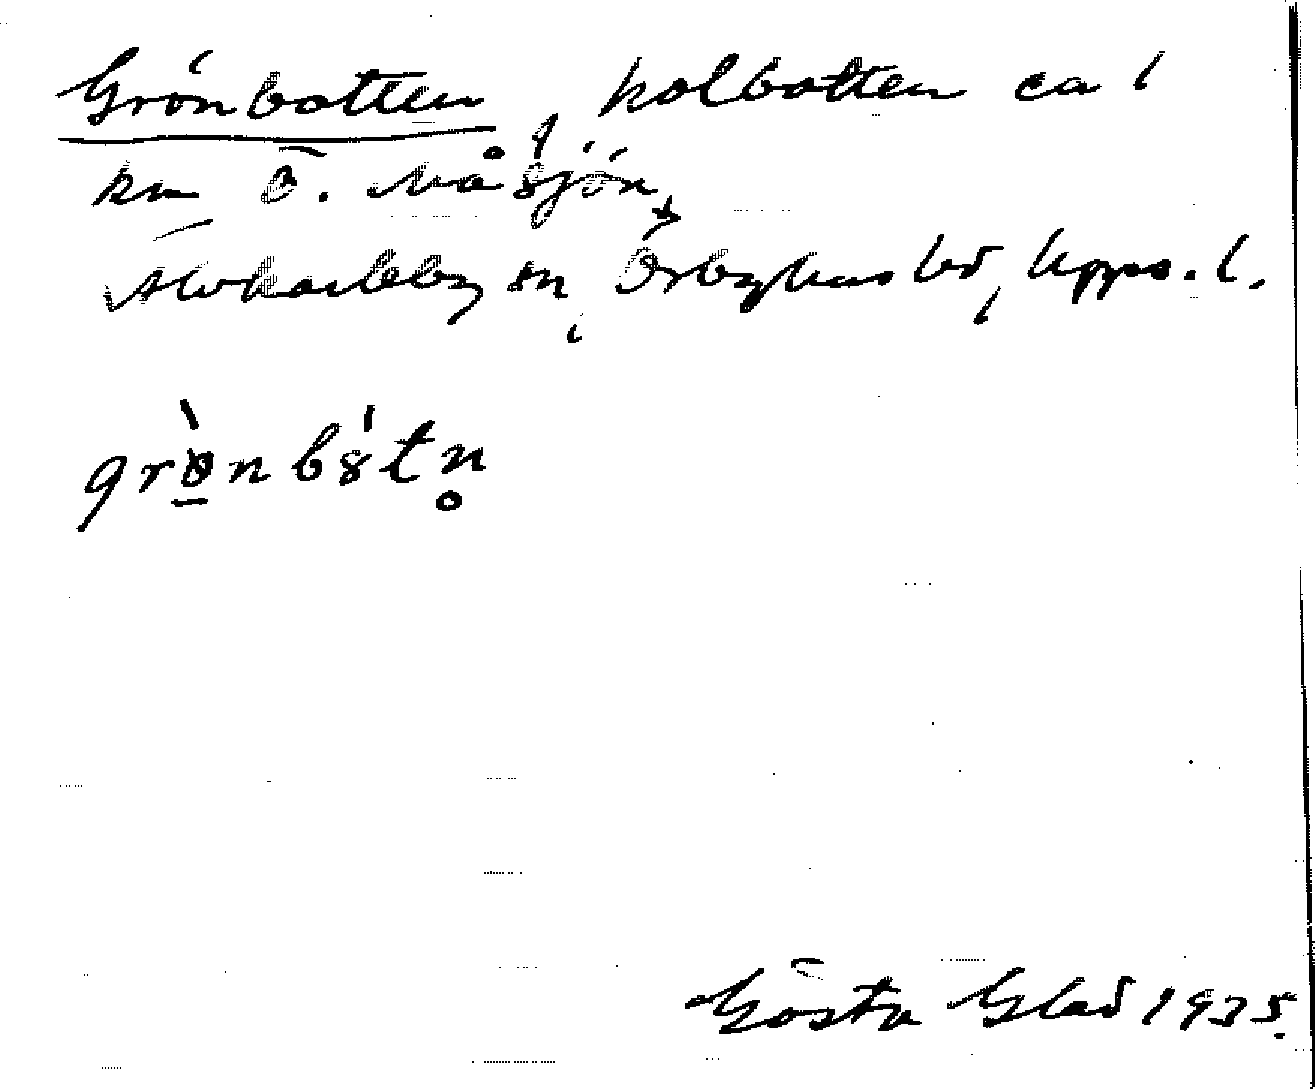 Grönbotten, kolbotten ca 1
km Ö. Måsjön,
Älvkarleby sn, Örbyhus hd, Upps. l.
grò̱nbȣ́tn̥
Gösta Glad 1935.